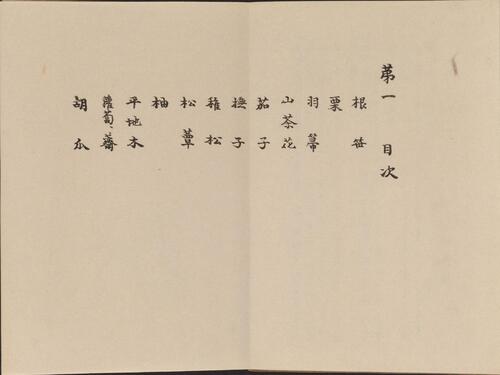 第一 目次
根笹
栗
羽箒
山茶花
茄子
撫子
稚松
松蕈
柚
平地木
蘿蔔、薺
胡瓜